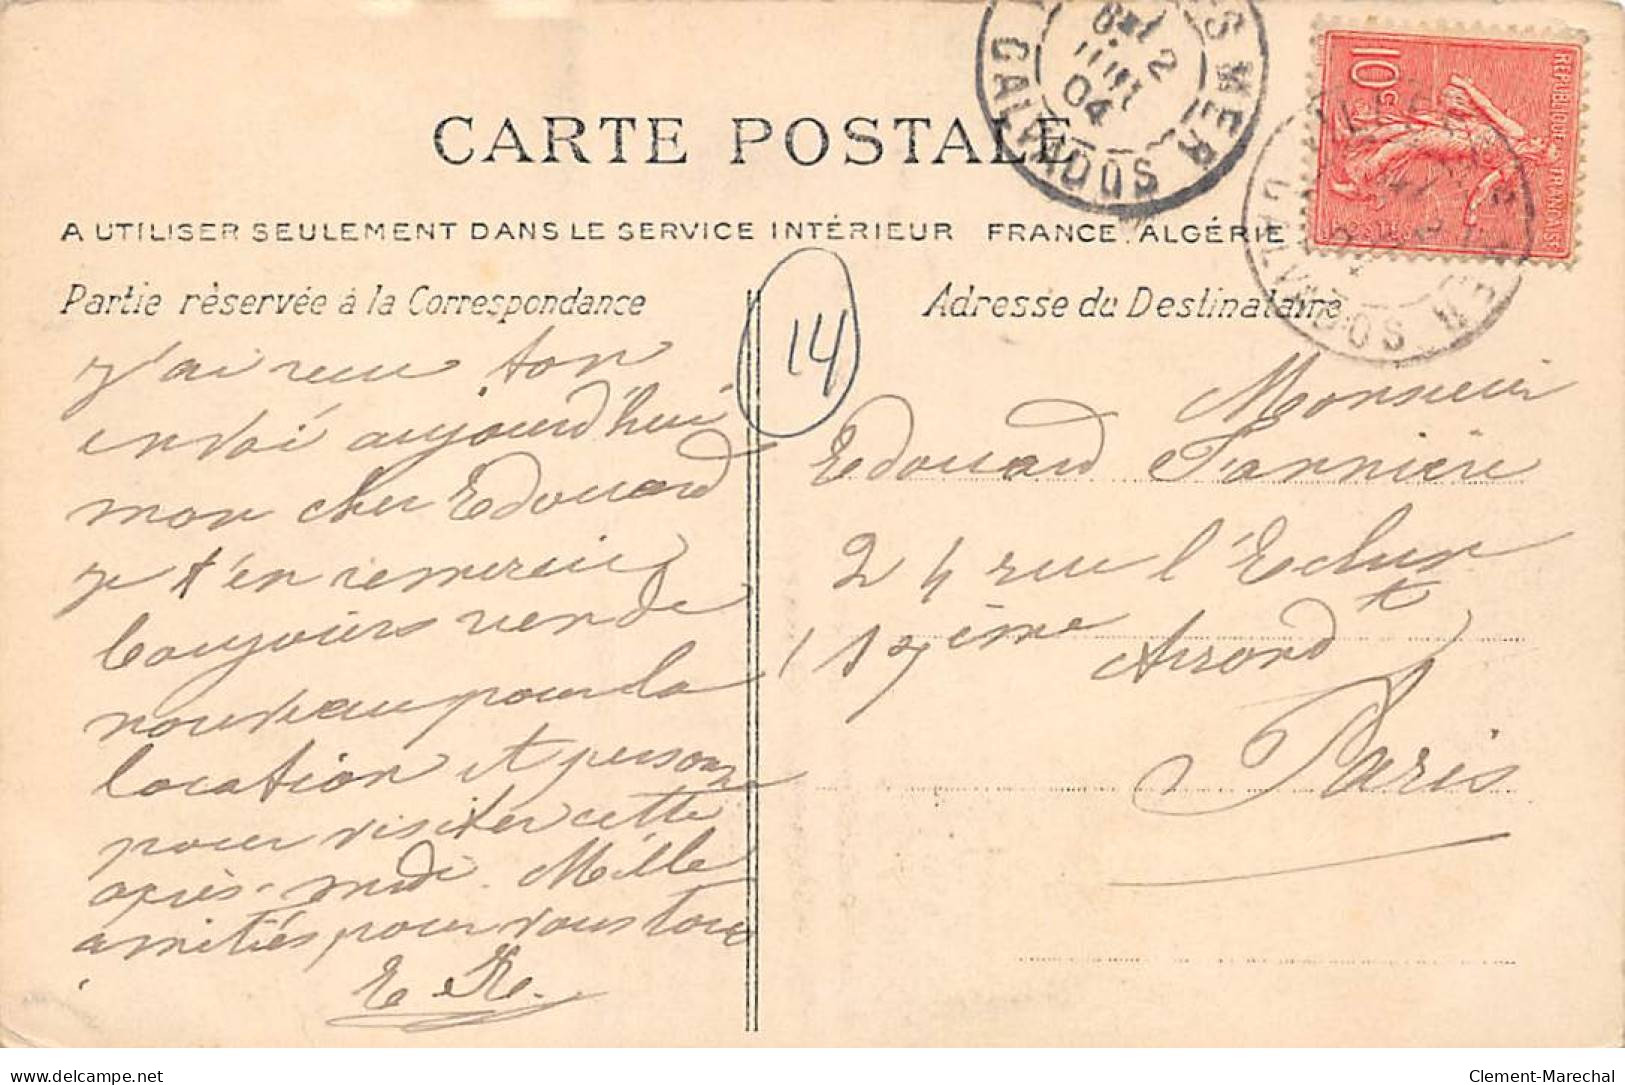 CARTE POSTALE
A UTILISER SEULEMENT DANS LE SERVICE INTÉRIEUR FRANCE. ALGÉRIE
Partie réservée à la Correspondance
Adresse du Destinataire
S MER
CALVADOS
2
04
10 c
REPUBLIQUE FRANÇAISE
MER
CALVADOS
14
j'ai reçu ton
envoi aujourd'hui
mon cher Edouard
je t'en remercie
toujours rien de
nouveau pour la
location et personne
pour visiter cette
après-midi. Mille
amitiés pour vous tous
Monsieur
Edouard
24 rue l'Ecluse
17ème Arrondt
Paris
delcampe.net
Clement-Marechal